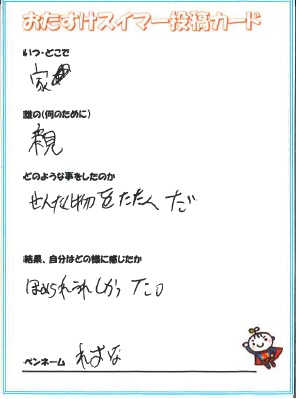 おたすけスイマー投稿カード
いつ・どこで
家
誰の(何のために)
親
どのような事をしたのか
せんたく物をたたんだ
結果、自分はどの様に感じたか
ほめられうれしかった。
ペンネーム れずな